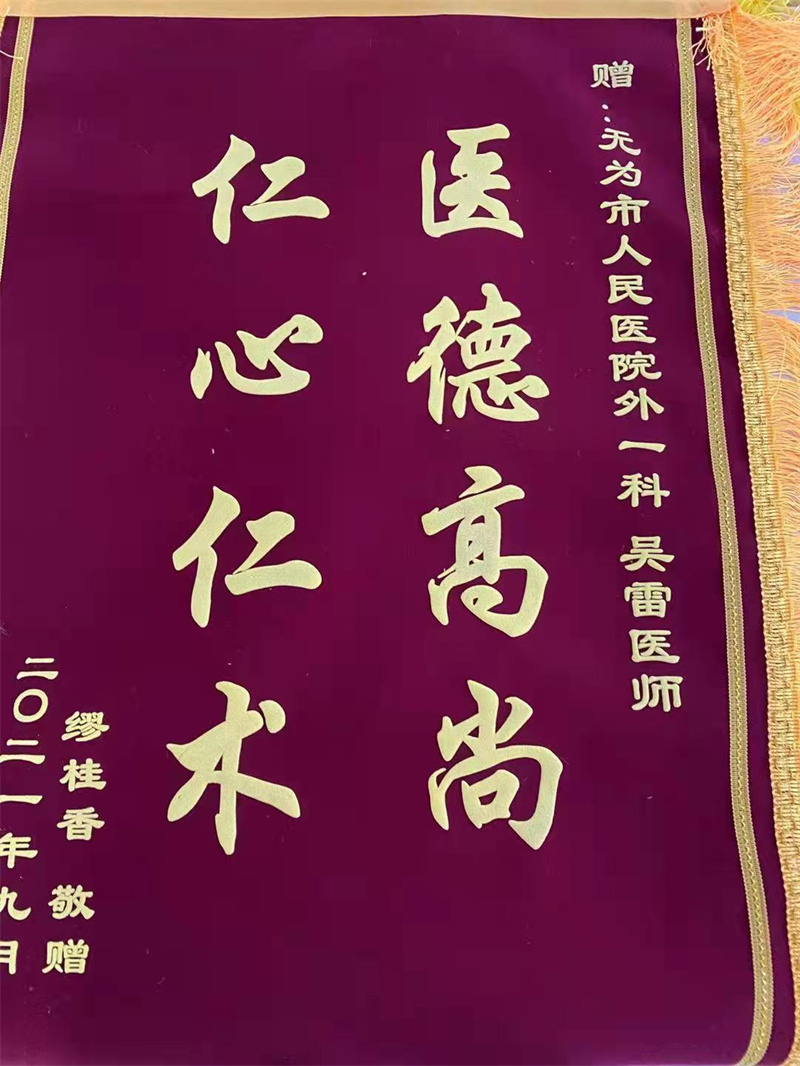 赠:无为市人民医院外一科 吴雷医师
医德高尚
仁心仁术
缪桂香 敬赠
二〇二一年九月